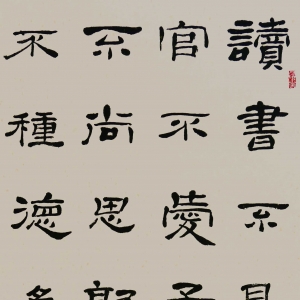 讀書不見
官不愛子
不尚思
不種德